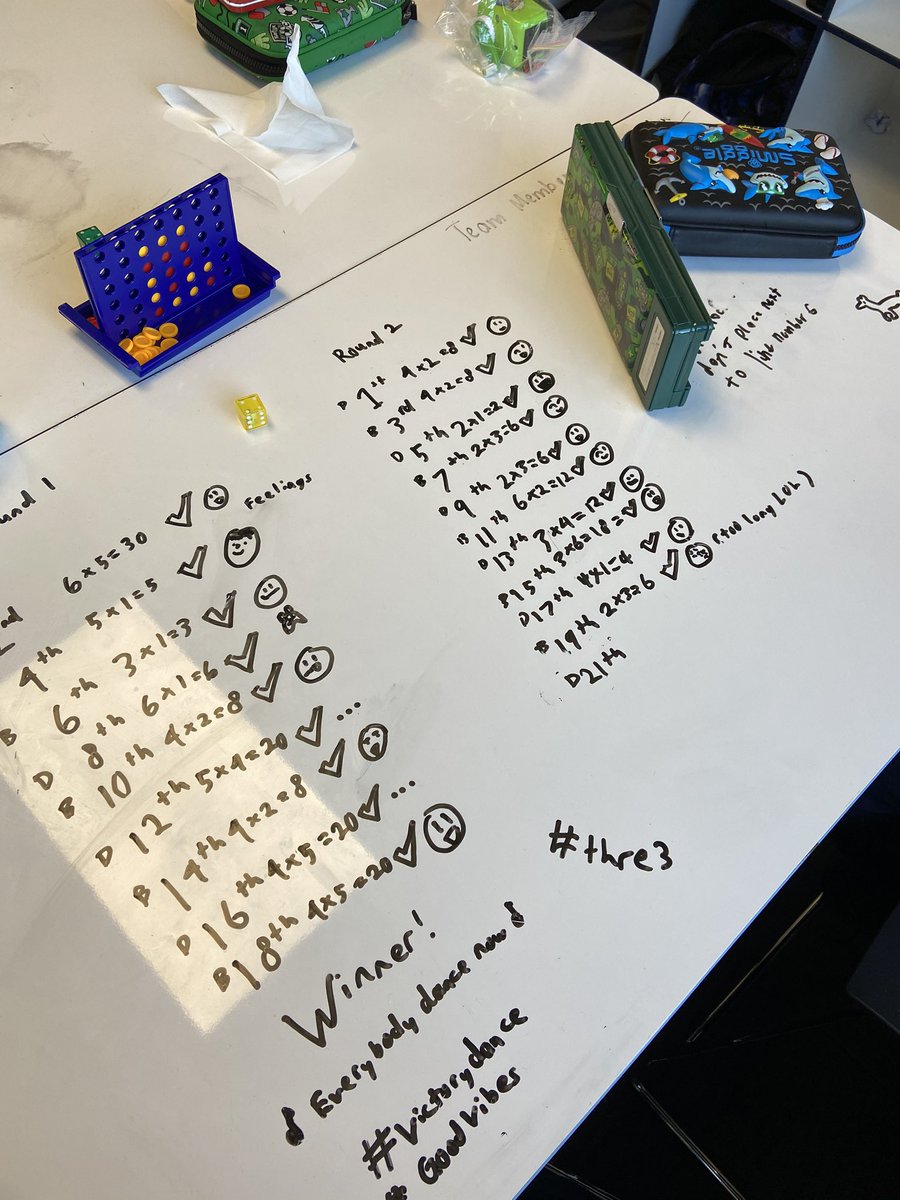 Smiggle
Team Membe
don't place next
to the number 6
Round 2
D 1st 4x2=8 ✓
B 3rd 4x2=8 ✓
D 5th 2x1=2 ✓
B 7th 2x3=6 ✓
D 9th 2x3=6 ✓
B 11th 6x2=12 ✓
D 13th 3x4=12 ✓
B 15th 3x6=18= ✓
D 17th 4x1=4 ✓
B 19th 2x3=6 ✓ (too long LOL)
D 21th
und 1
Feelings
nd 6x5=30 ✓
4th 5x1=5 ✓
B 6th 3x1=3 ✓
D 8th 6x1=6 ✓
B 10th 4x2=8 ✓
D 12th 5x4=20 ✓ ...
B 14th 4x2=8 ✓
D 16th 4x5=20 ✓ ...
B 18th 4x5=20 ✓
Winner!
♪ Everybody dance now ♪
#victorydance
# Good vibes
#thre3